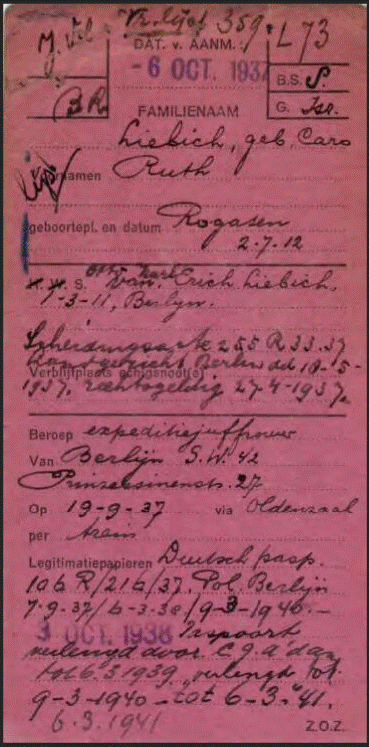 J. Vl Vr. lijst 359. L 73
DAT. v. AANM.:
- 6 OCT. 1937
B.S. S.
B R G. Isr.
FAMILIENAAM
Liebich, geb. Caro
namen Ruth
geboortepl. en datum Rogasen
2-7-12
S. van Erich Liebich,
7-3-11, Berlyn.
255 R 33.37
Berlin dd 10-5-
Verblijfplaats echtgenoot(e)
1937, 27-4-1937.
Beroep expeditiejuffrouw
Van Berlijn S.W. 42
Prinzessinenstr. 27
Op 19-9-37 via Oldenzaal
per trein
Legitimatiepapieren Duitsch pasp.
106 R/216/37. Pol. Berlijn
7-9-37/6-3-38/9-3-1940.-
3 OCT. 1938 paspoort
verlengd door C.G. A'dam
tot 6.3.1939, verlengd tot
9-3-1940 - tot 6-3-'41.
6.3.1941
Z.O.Z.